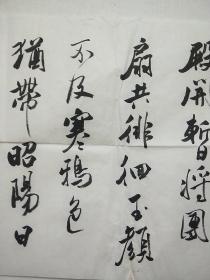 殿開暫將團
扇共徘徊玉顏
不及寒鴉色
猶帶昭陽日